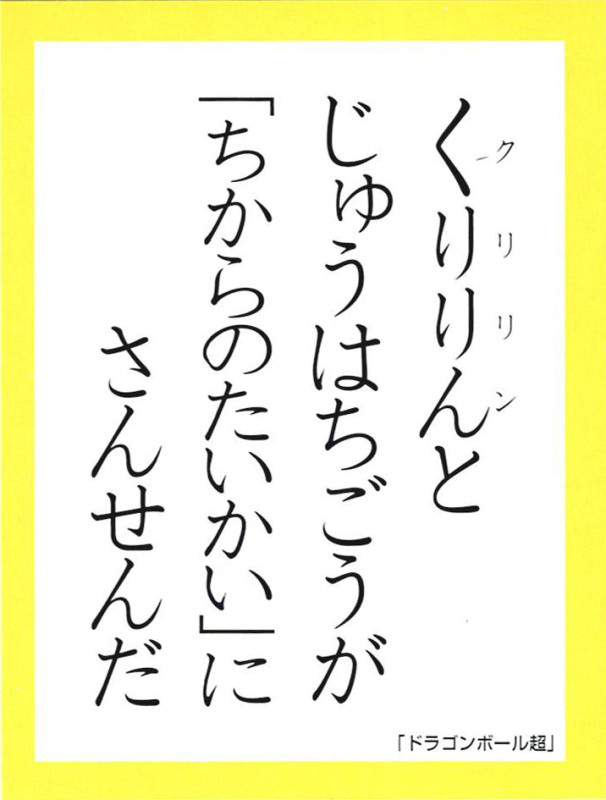 くりりんと
クリリン
じゅうはちごうが
「ちからのたいかい」に
さんせんだ
「ドラゴンボール超」